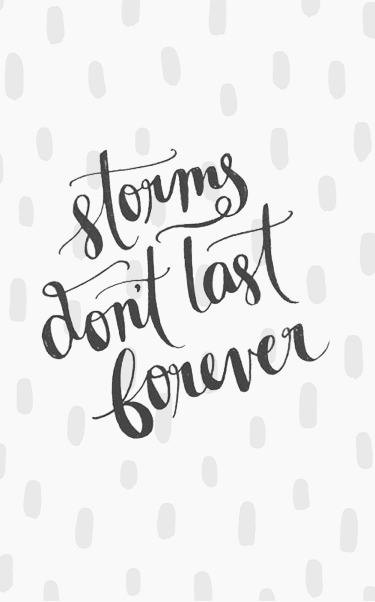 storms
don't last
forever